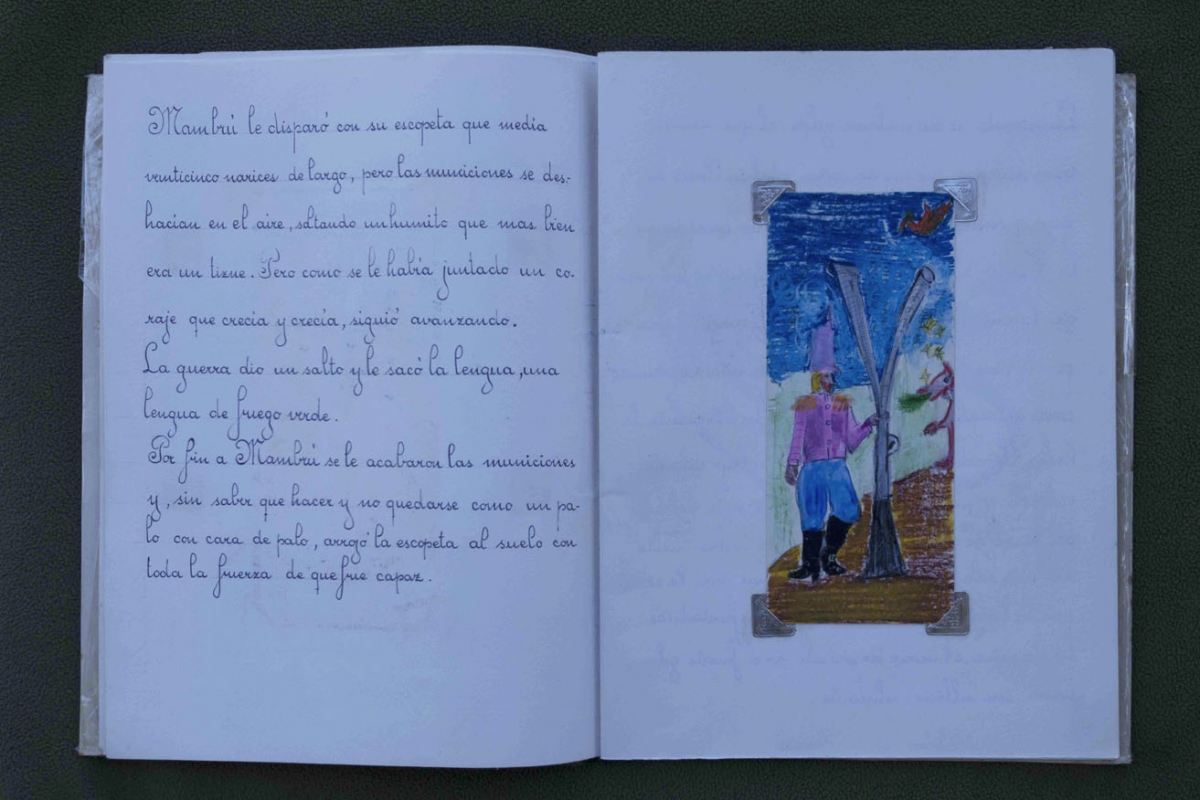 Mambrú le disparó con su escopeta que media
veinticinco narices de largo, pero las municiones se des-
hacian en el aire, soltando un humito que mas bien
era un tizne. Pero como se le había juntado un co-
raje que crecia y crecía, siguió avanzando.
La guerra dio un salto y le sacó la lengua, una
lengua de fuego verde.
Por fin a Mambrú se le acabaron las municiones
y, sin saber que hacer y no quedarse como un pa-
lo con cara de palo, arrojó la escopeta al suelo con
toda la fuerza de que fue capaz.